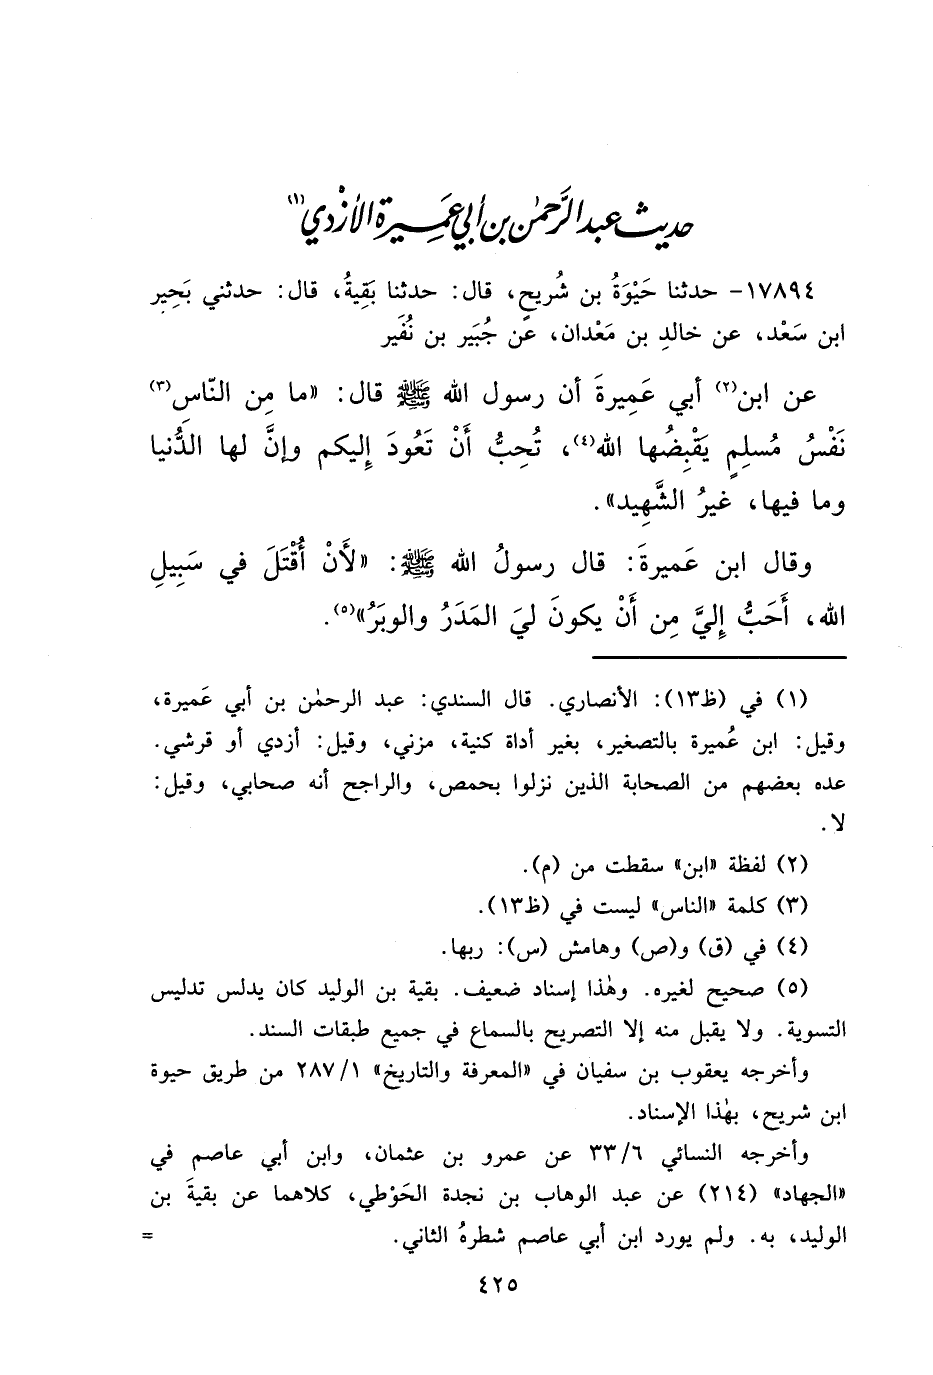 حديث عبد الرَّحمٰن بن أبي عَمِيرة الأزْدي(١)
١٧٨٩٤- حدثنا حَيْوَةُ بن شُريحٍ، قال: حدثنا بَقِيةُ، قال: حدثني بَحِير
ابن سَعْد، عن خالدِ بن مَعْدان، عن جُبَير بن نُفَير
عن ابن(٢) أبي عَمِيرةَ أن رسول الله ﷺ قال: «ما مِن النّاسِ(٣)
نَفْسُ مُسلِمٍ يَقْبِضُها الله(٤)، تُحِبُّ أَنْ تَعُودَ إِليكم وإنَّ لها الدُّنيا
وما فيها، غيرُ الشَّهِيد».
وقال ابن عَميرةَ: قال رسولُ الله ﷺ: «لأَنْ أُقْتَلَ في سَبِيلِ
الله، أَحَبُّ إِليَّ مِن أَنْ يكونَ ليَ المَدَرُ والوبَرُ»(٥).
(١) في (ظ١٣): الأنصاري. قال السندي: عبد الرحمٰن بن أبي عَميرة،
وقيل: ابن عُميرة بالتصغير، بغير أداة كنية، مزني، وقيل: أزدي أو قرشي.
عده بعضهم من الصحابة الذين نزلوا بحمص، والراجح أنه صحابي، وقيل:
لا.
(٢) لفظة «ابن» سقطت من (م).
(٣) كلمة «الناس» ليست في (ظ١٣).
(٤) في (ق) و(ص) وهامش (س): ربها.
(٥) صحيح لغيره. وهٰذا إسناد ضعيف. بقية بن الوليد كان يدلس تدليس
التسوية. ولا يقبل منه إلا التصريح بالسماع في جميع طبقات السند.
وأخرجه يعقوب بن سفيان في «المعرفة والتاريخ» ٢٨٧/١ من طريق حيوة
ابن شريح، بهٰذا الإسناد.
وأخرجه النسائي ٣٣/٦ عن عمرو بن عثمان، وابن أبي عاصم في
«الجهاد» (٢١٤) عن عبد الوهاب بن نجدة الحَوْطي، كلاهما عن بقيةَ بن
الوليد، به. ولم يورد ابن أبي عاصم شطرهُ الثاني. =
٤٢٥